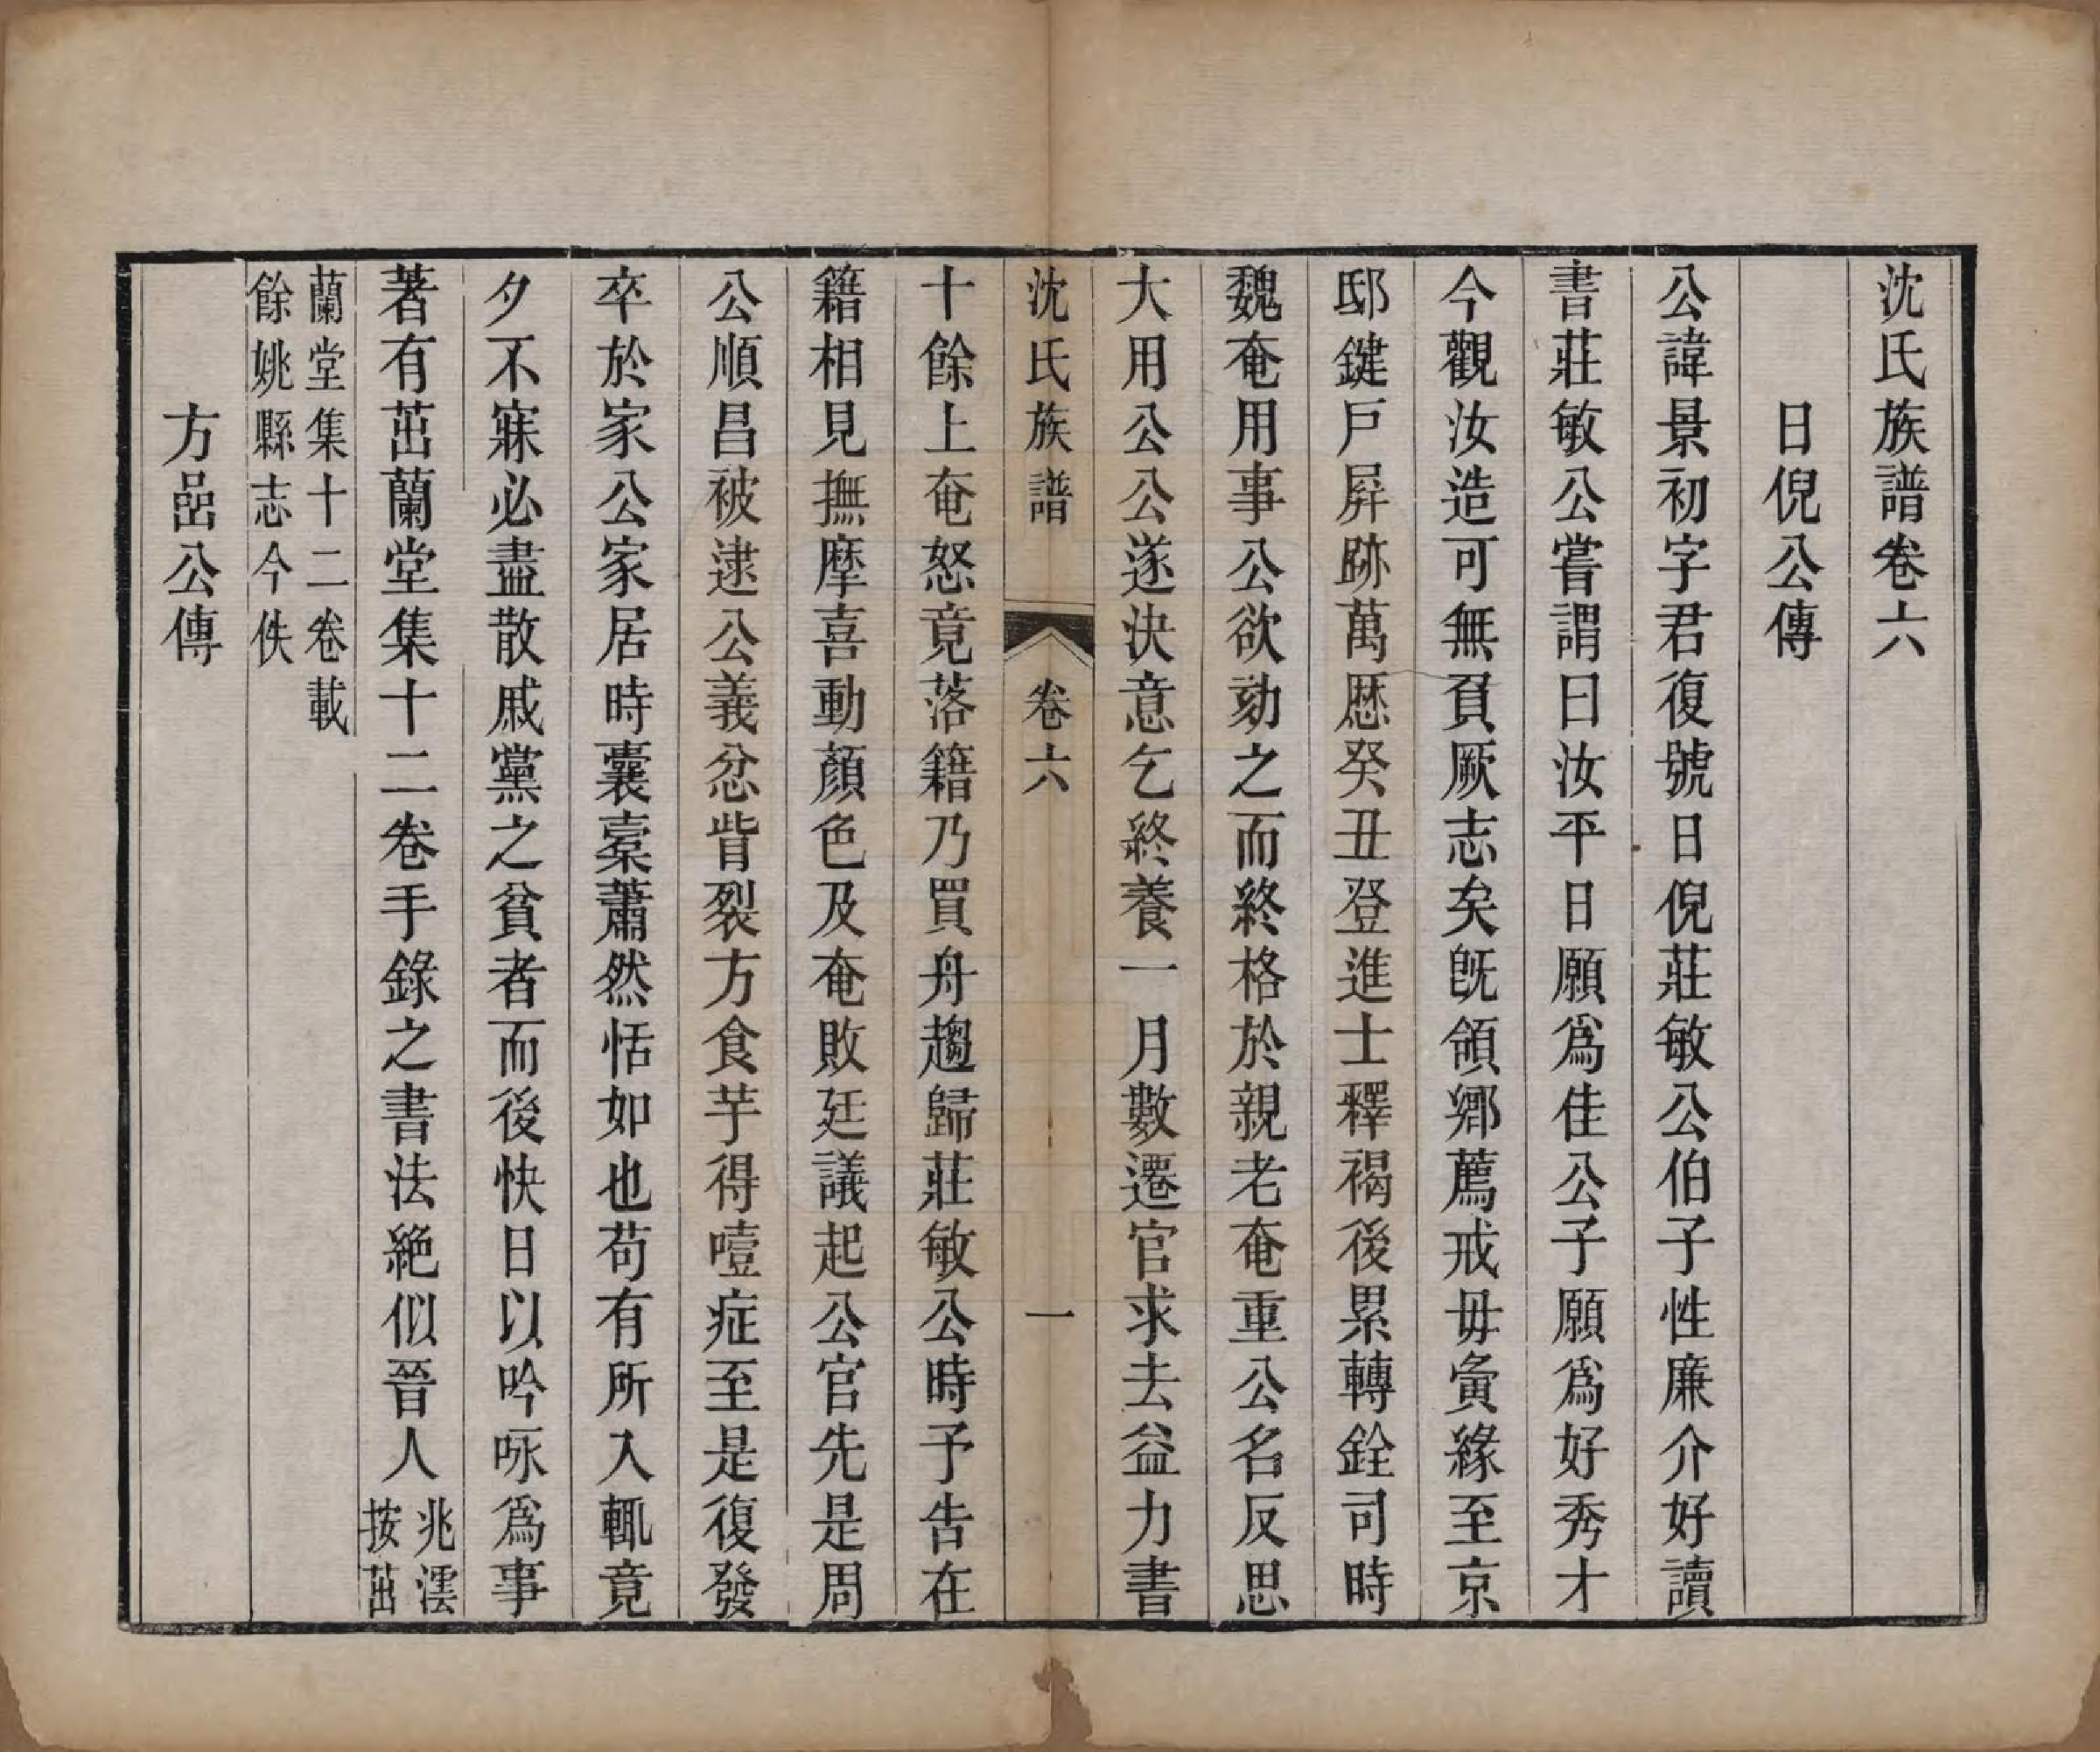 沈氏族譜卷六
日倪公傳
公諱景初字君復號日倪莊敏公伯子性廉介好讀
書莊敏公嘗謂曰汝平日願爲佳公子願爲好秀才
今觀汝造可無負厥志矣旣領鄉薦戒毋夤緣至京
邸鍵戸屛跡萬厯癸丑登進士釋褐後累轉銓司時
魏奄用事公欲劾之而終格於親老奄重公名反思
大用公公遂決意乞終養一月數遷官求去益力書
沈氏族譜 卷六 一
十餘上奄怒竟落籍乃買舟趨歸莊敏公時予告在
籍相見撫摩喜動顏色及奄敗廷議起公官先是周
公順昌被逮公義忿眥裂方食芋得噎症至是復發
卒於家公家居時囊橐蕭然恬如也苟有所入輒竟
夕不寐必盡散戚黨之貧者而後快日以吟咏爲事
著有茁蘭堂集十二卷手錄之書法絶似晉人兆澐
按茁
蘭堂集十二卷載
餘姚縣志今佚
方嵒公傳